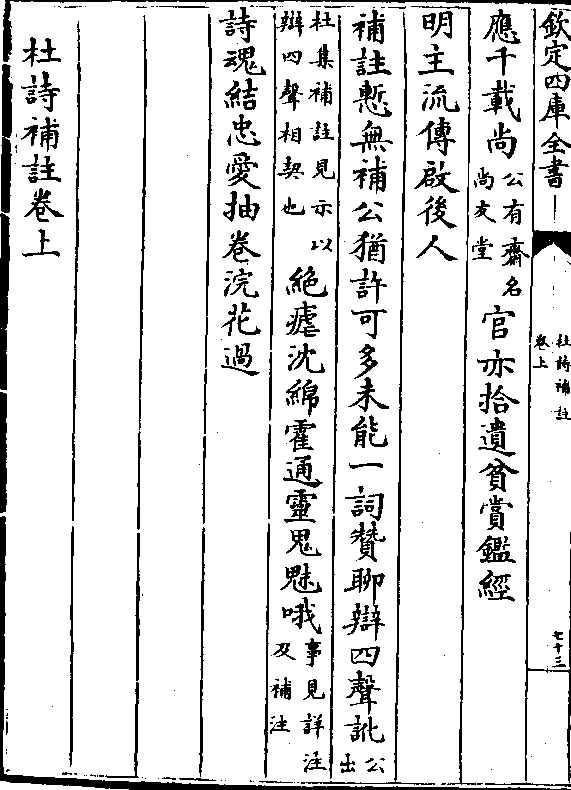 欽定四庫全書
杜詩補註
卷上
七十三
應千載尚公有齋名尚友堂官亦拾遺貧賞鑑經
明主流傳啟後人
補註慙無補公猶許可多未能一詞贊聊辯四聲訛公出
杜集補註見示以辯四聲相契也絕瘧沈綿霍通靈鬼魅哦事見詳注及補注
詩魂結忠愛抽卷浣花過
杜詩補註卷上